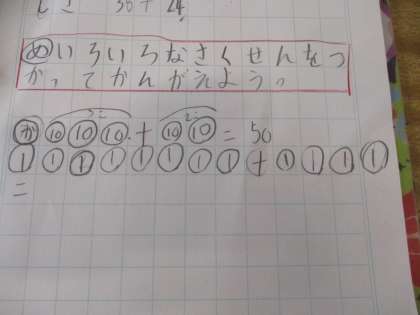 しき 38+24
めいろいろなさくせんをつ
かってかんがえよう。
3こ 2こ
か⑩⑩⑩+⑩⑩=50
①①①①①①①①+①①①①
=